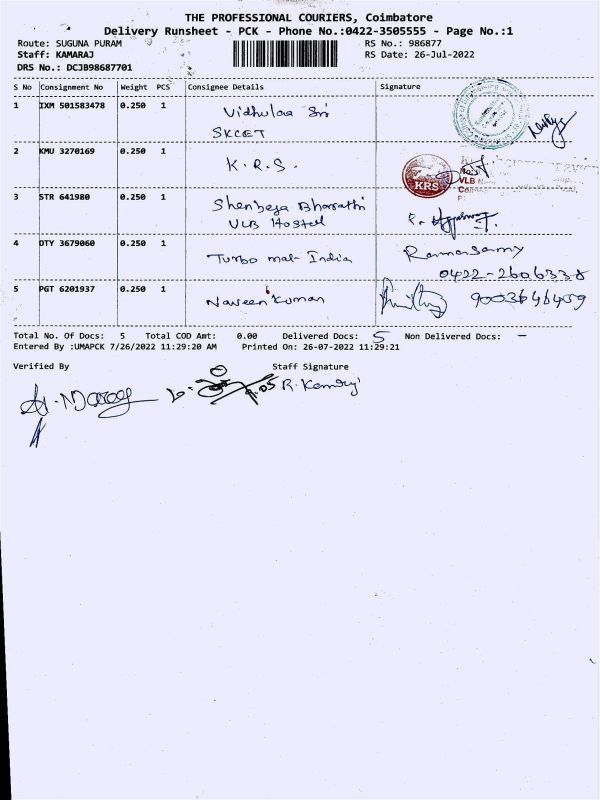 THE PROFESSIONAL COURIERS, Coimbatore
Delivery Runsheet - PCK - Phone No.:0422-3505555 - Page No.:1
Route: SUGUNA PURAM RS No.: 986877
Staff: KAMARAJ RS Date: 26-Jul-2022
DRS No.: DCJB98687701
S No Consignment No Weight PCS Consignee Details Signature
1 IXM 501583478 0.250 1 Vidhulaa Sri
SKCET
2 KMU 3270169 0.250 1 K.R.S.
KRS VLB
3 STR 641980 0.250 1 Shenbega Bharathi
VLB Hostel
4 DTY 3679060 0.250 1 Turbo mat- India Ramasamy
0422-2606338
5 PGT 6201937 0.250 1 Naveen Kumar 9003646459
Total No. Of Docs: 5 Total COD Amt: 0.00 Delivered Docs: 5 Non Delivered Docs: -
Entered By :UMAPCK 7/26/2022 11:29:20 AM Printed On: 26-07-2022 11:29:21
Verified By Staff Signature
R. Kamaraj